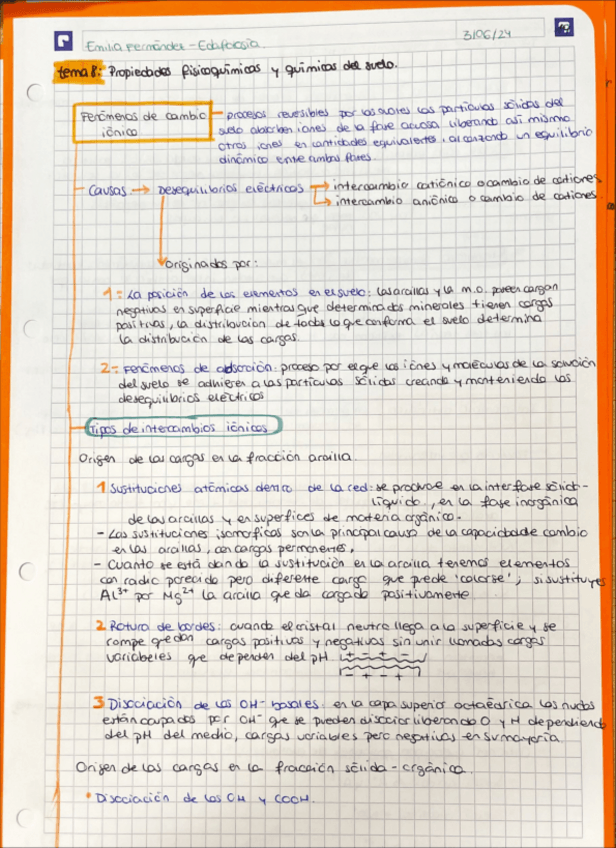 Emilia Fernández - Edafología
3/06/24
tema 8: Propiedades fisicoquímicas y químicas del suelo.
Fenómenos de cambio iónico
procesos reversibles por los cuales las partículas sólidas del
suelo absorben iones de la fase acuosa liberando así mismo
otros iones en cantidades equivalentes, alcanzando un equilibrio
dinámico entre ambas fases.
Causas → Desequilibrios eléctricos → intercambio catiónico o cambio de cationes
→ intercambio aniónico o cambio de cationes
Originados por:
1= La posición de los elementos en el suelo: las arcillas y la m.o. poseen cargas
negativas en superficie mientras que determinados minerales tienen cargas
positivas, la distribucion de todo lo que conforma el suelo determina
la distribución de las cargas.
2= Fenómenos de adsorción: proceso por el que los iones y moléculas de la solución
del suelo se adhieren a las partículas sólidas creando y manteniendo los
desequilibrios eléctricos
Tipos de intercambios iónicos
Origen de las cargas en la fracción arcilla.
1 Sustituciones atómicas dentro de la red: se produce en la interfase sólido-
líquido, en la fase inorgánica
de las arcillas y en superfices de materia orgánico.
- Las sustituciones isomorficas son la principal causa de la capacidad de cambio
en las arcillas, con cargas permanentes.
- Cuanto se está dando la sustitución en la arcilla tenemos elementos
con radio parecido pero diferente carga que puede 'colarse', si sustituyes
Al³⁺ por Mg²⁺ la arcilla queda cargada positivamente
2 Rotura de bordes: cuando el cristal neutro llega a la superficie y se
rompe quedan cargas positivas y negativas sin unir llamadas cargas
variabeles que dependen del pH
+ - + -
- + - +
3 Disociación de los OH⁻ basales: en la capa superior octaédrica los nudos
están ocupados por OH⁻ que se pueden disociar liberando O y H dependiendo
del pH del medio, cargas variables pero negativas en su mayoria.
Origen de las cargas en la fracción sólida-orgánica.
• Disociación de los OH y COOH.